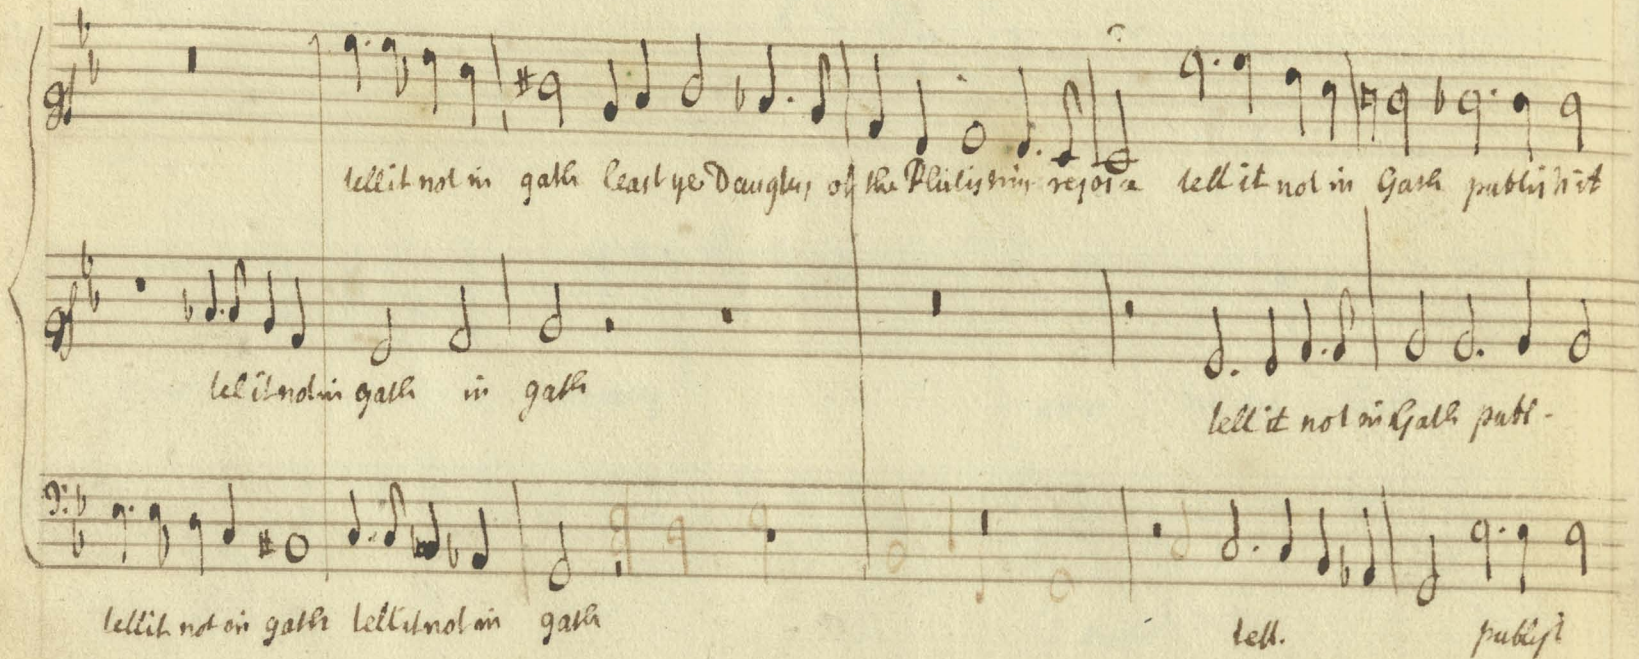 tell it not in gath least ye Daughters of the Philistins rejoice tell it not in Gath publish it
tel it not in gath in gath tell it not in Gath publ-
tell it not in gath tell it not in gath tell. publish